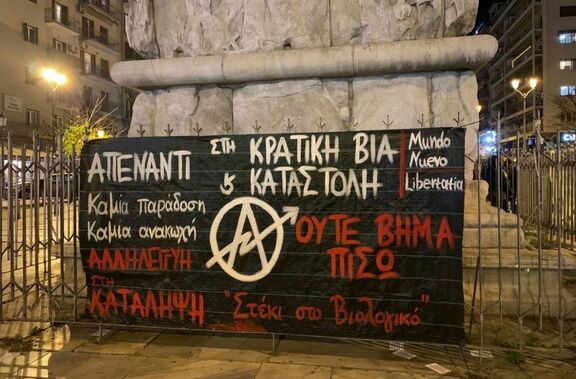 ΑΠΕΝΑΝΤΙ ΣΤΗ ΚΡΑΤΙΚΗ ΒΙΑ
& ΚΑΤΑΣΤΟΛΗ
Mundo
Nuevo
Libertatia
Καμία παράδοση
Καμια ανακωχή
ΟΥΤΕ ΒΗΜΑ
ΠΙΣΩ
ΑΛΛΗΛΕΓΓΥΗ
ΣΤΗ
ΚΑΤΑΛΗΨΗ "Στέκι στο Βιολογικό"